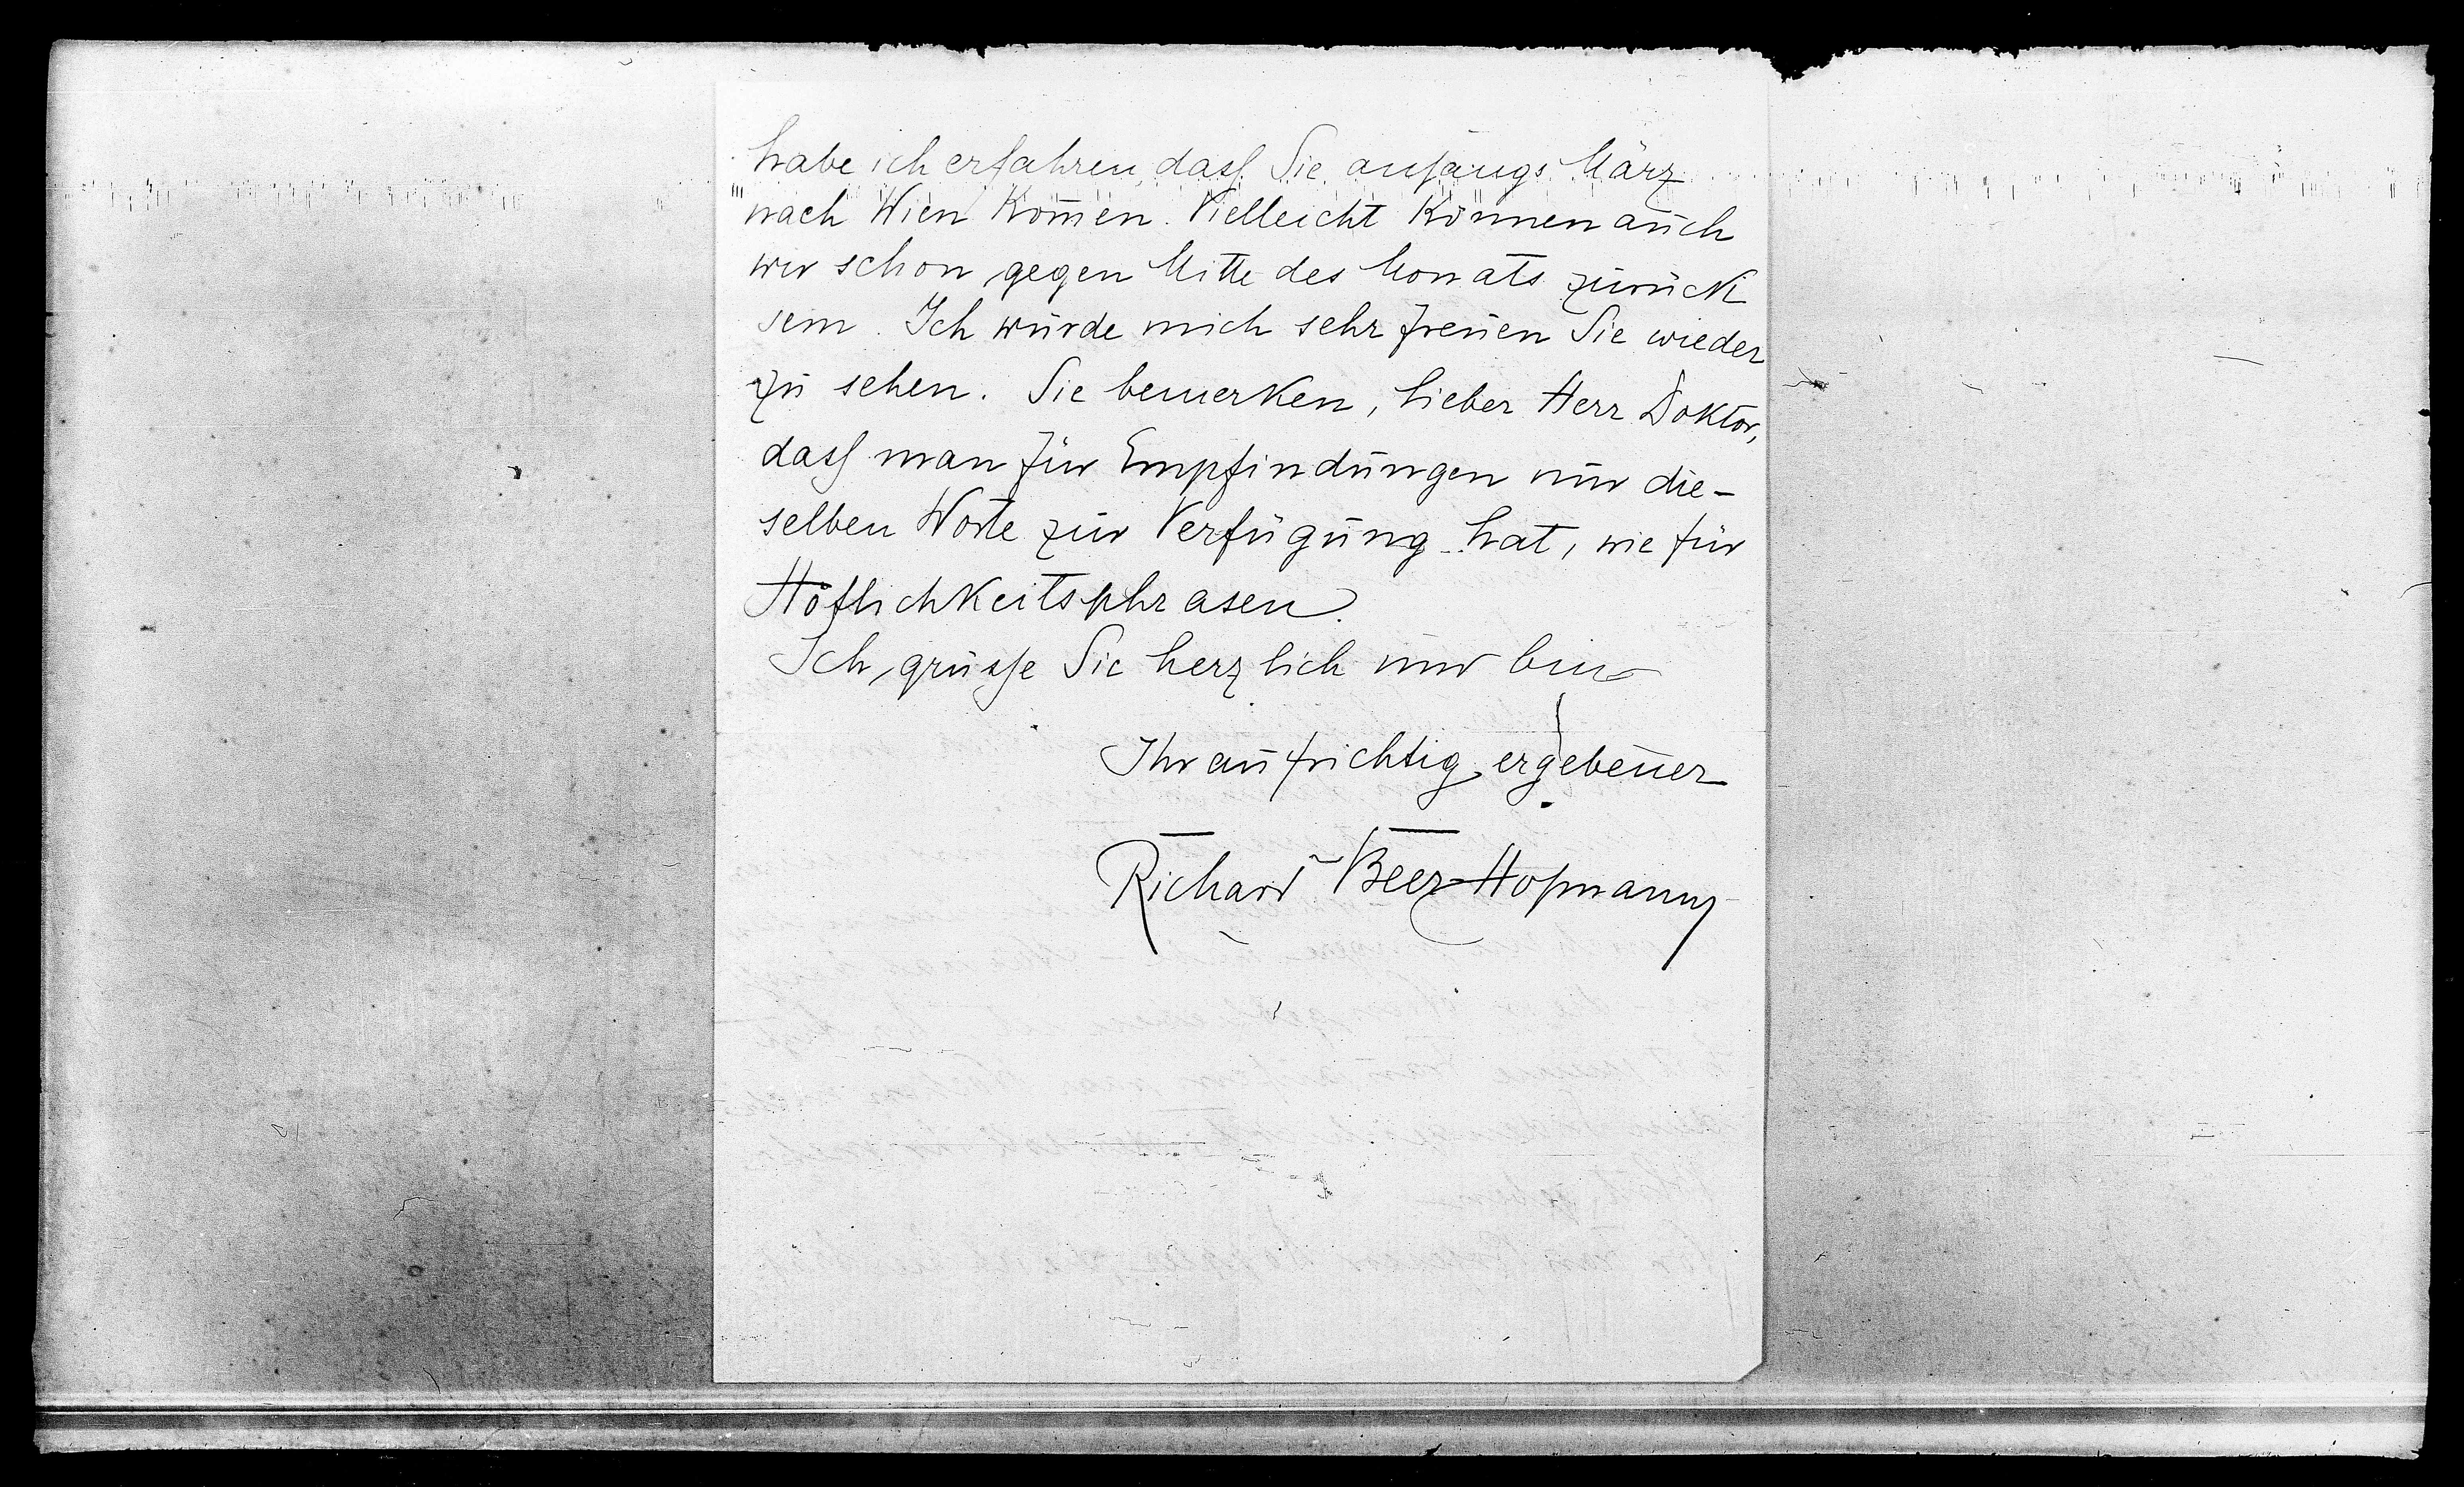 habe ich erfahren, dass Sie anfangs März
nach Wien kom̅en. Vielleicht können auch
wir schon gegen Mitte des Monats zurück
sein. Ich würde mich sehr freuen Sie wieder
zu sehen. Sie bemerken, lieber Herr Doktor,
dass man für Empfindungen nur die-
selben Worte zur Verfügung hat, wie für
Höflichkeitsphrasen.
Ich grüsse Sie herzlich und bin
Ihr aufrichtig ergebener
Richard Beer-Hofmann